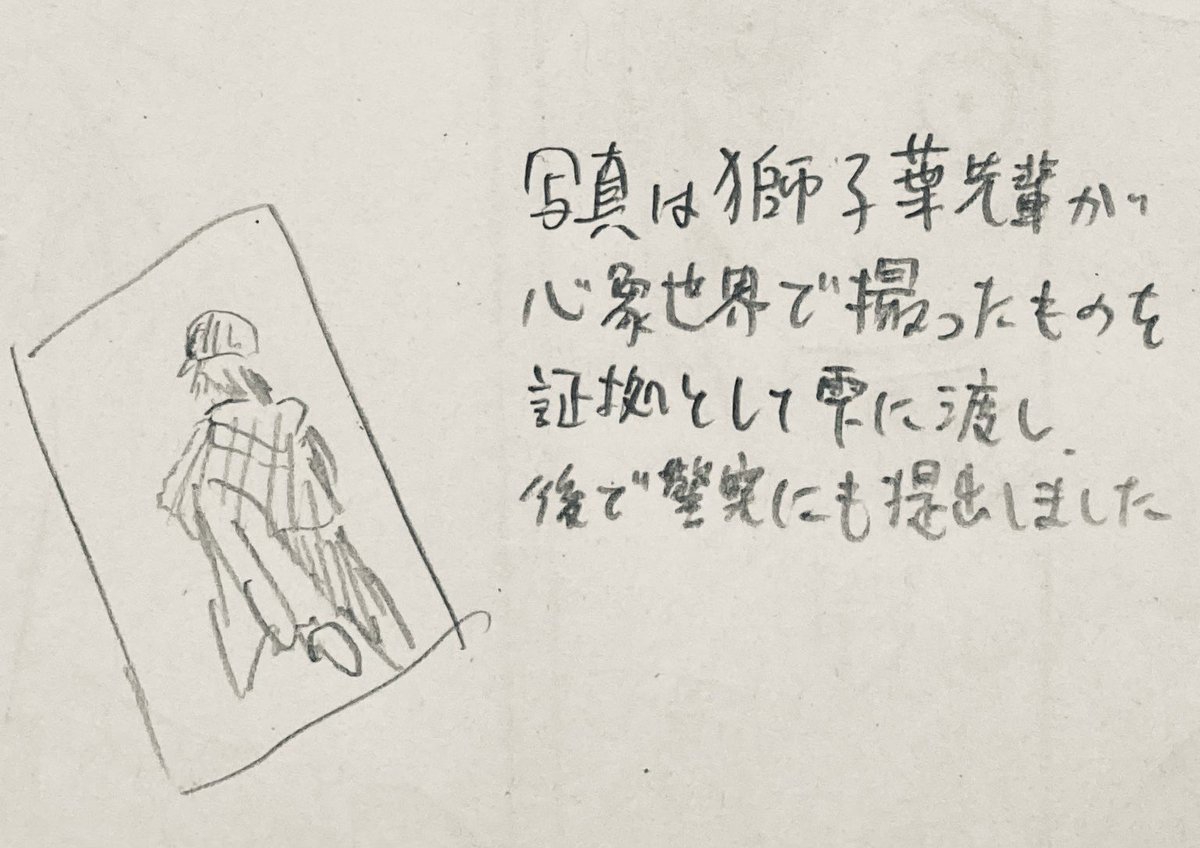 写真は獅子葉先輩が
心象世界で撮ったものを
証拠として雫に渡し
後で警察にも提出しました